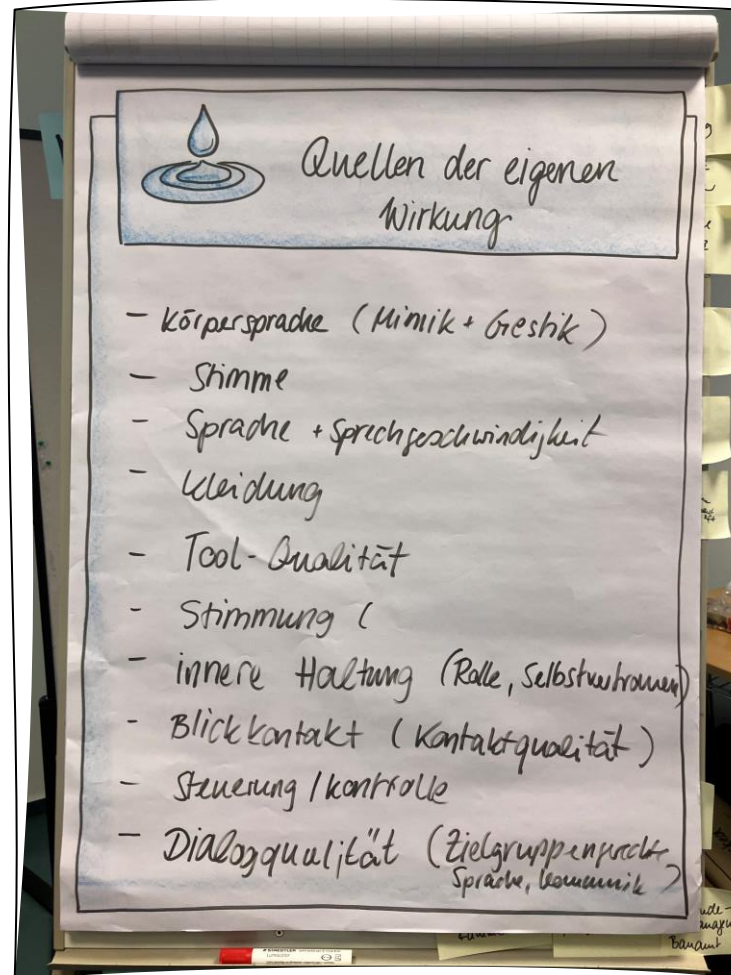 Quellen der eigenen
Wirkung
- Körpersprache (Mimik + Gestik)
- Stimme
- Sprache + Sprechgeschwindigkeit
- Kleidung
- Tool-Qualität
- Stimmung (
- innere Haltung (Rolle, Selbstvertrauen)
- Blickkontakt (Kontaktqualität)
- Steuerung / Kontrolle
- Dialogqualität (Zielgruppengerechte
Sprache, Kommunik)
STAEDTLER
Bauamt